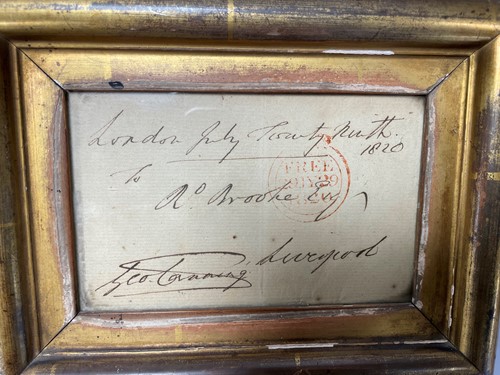 London July Twenty Ninth.
1820
To
Rd Brooke Esq
Liverpool
Geo. Canning
FREE
29